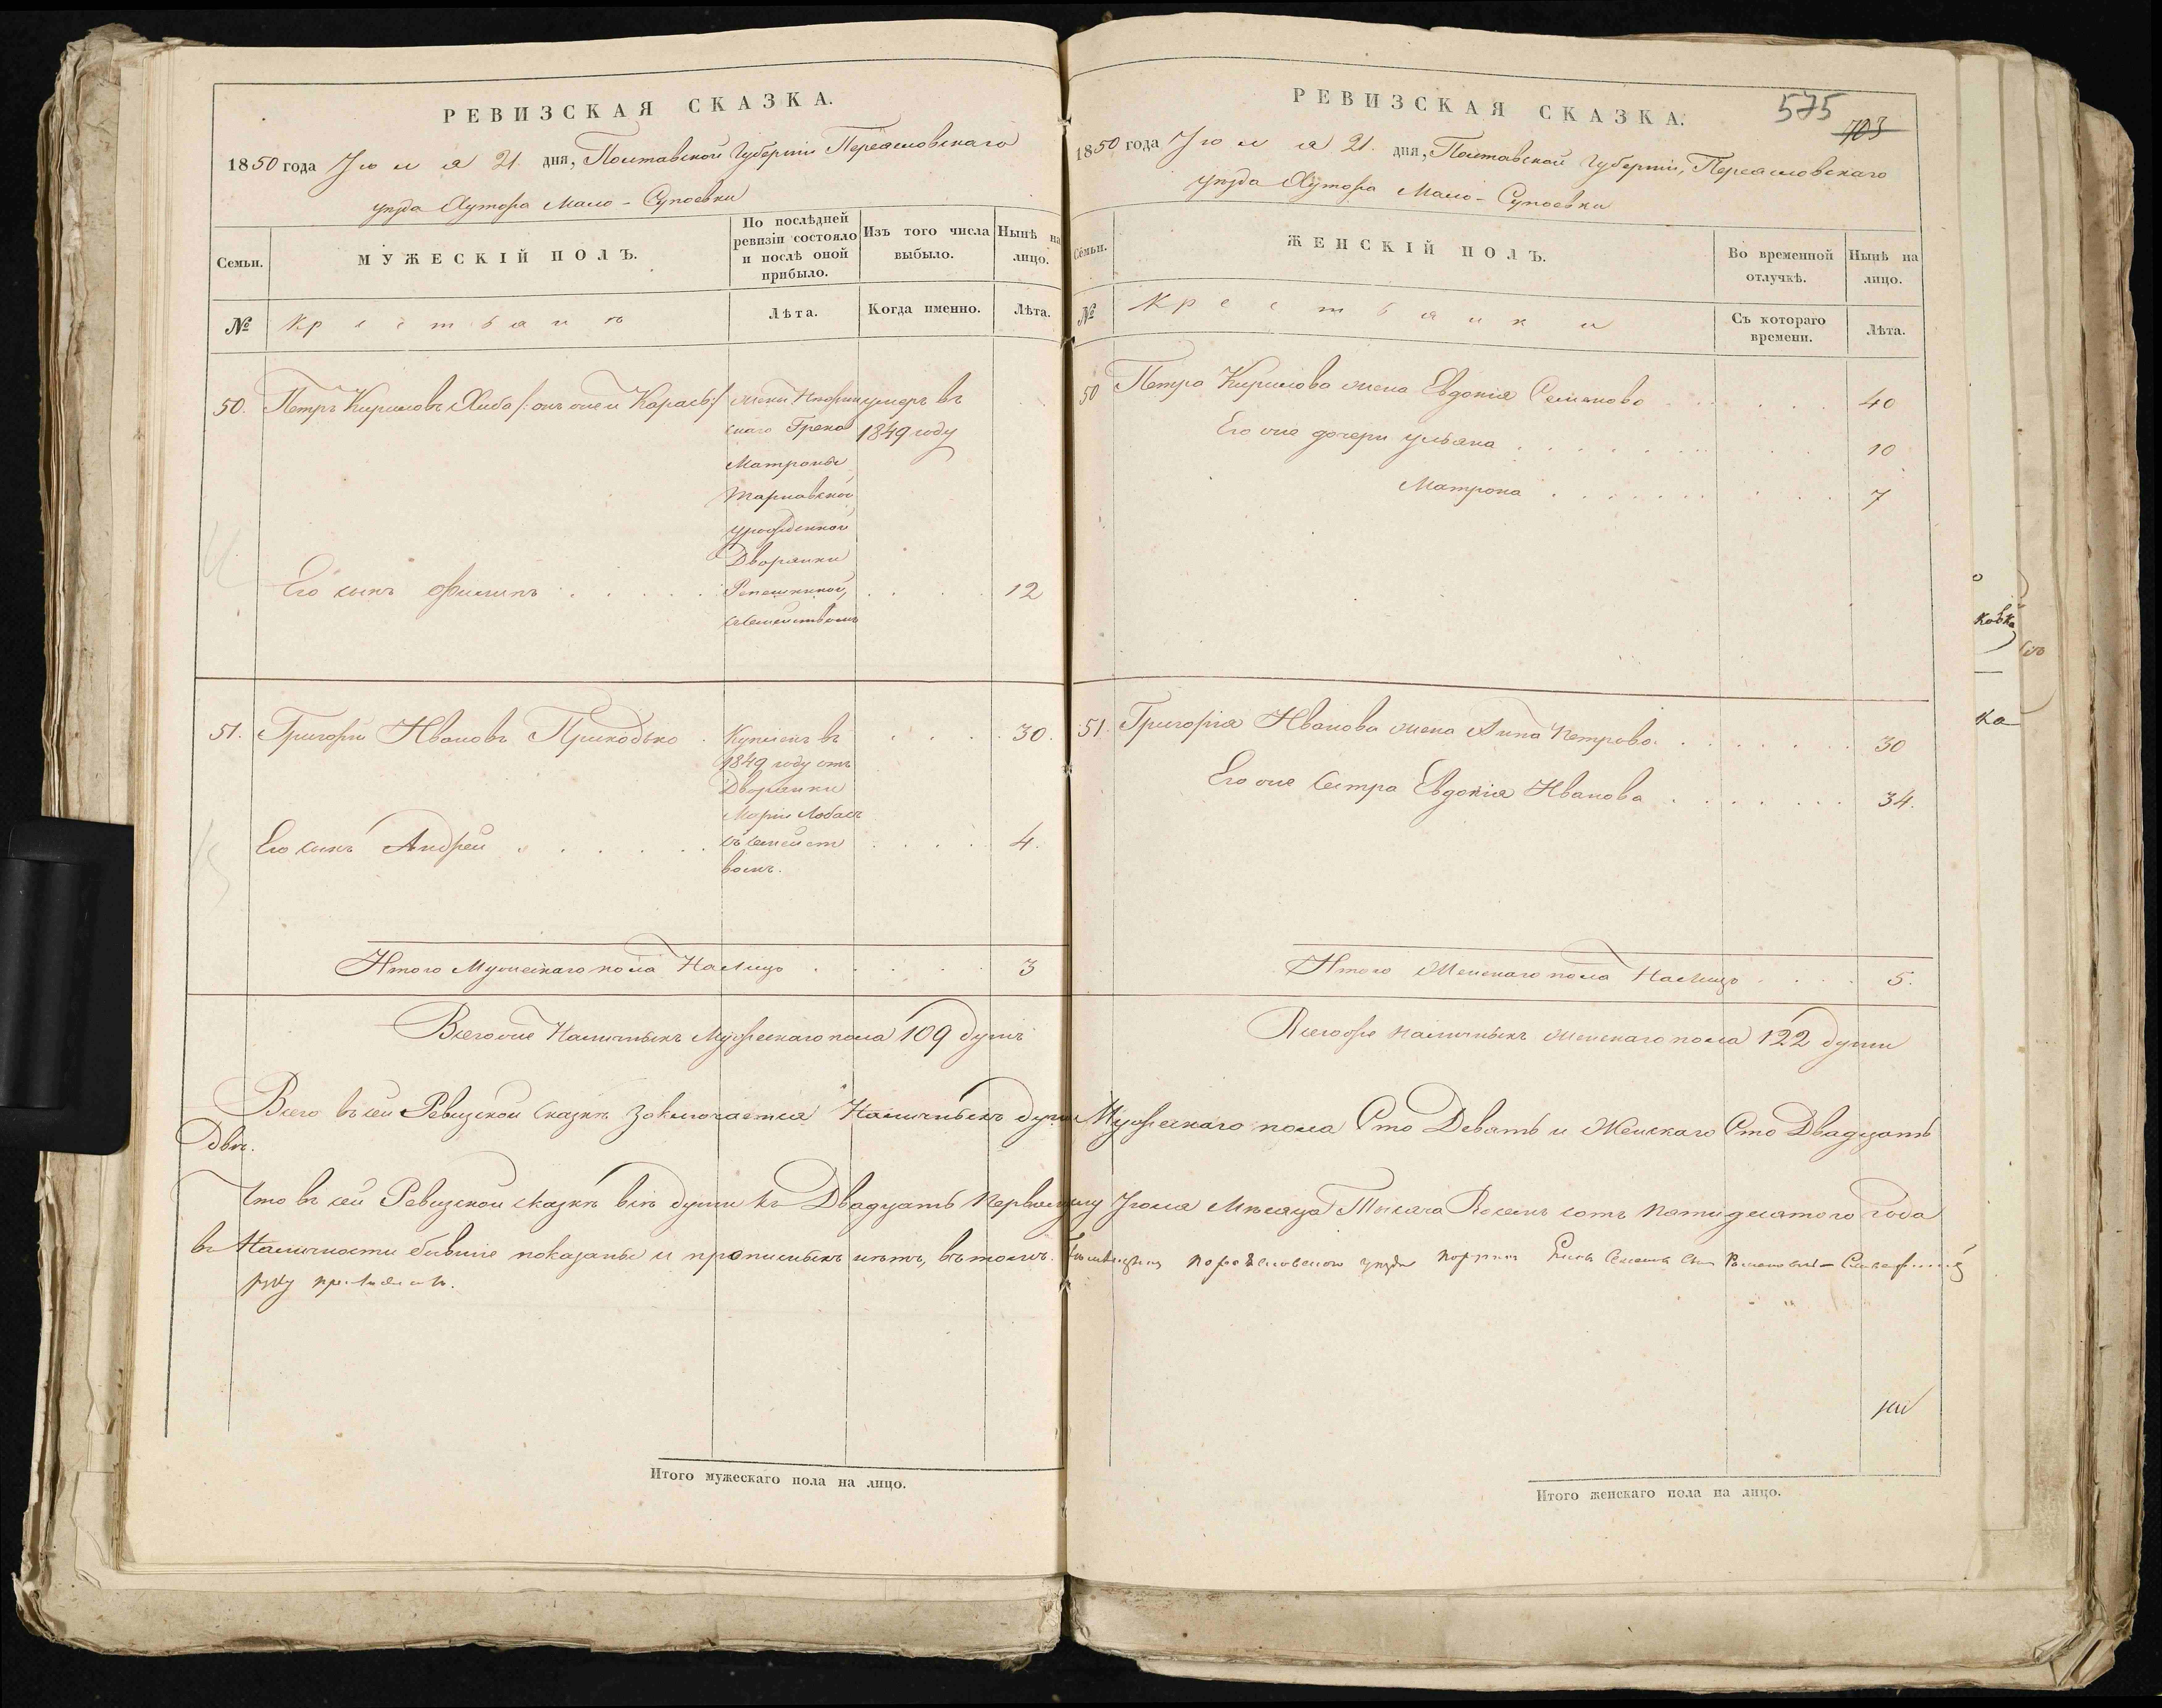 РЕВИЗСКАЯ СКАЗКА.
1850 года Іюля 21. дня, Полтавской Губерніи Переясловскаго
уѣзда Хутора Мало-Супоевки
Семьи.
МУЖЕСКІЙ ПОЛЪ.
По послѣдней ревизіи состояло и послѣ оной прибыло.
Изъ того числа выбыло.
Нынѣ на лицо.
№
Крестьянъ
Лѣта.
Когда именно.
Лѣта.
50. Петръ Кириловъ Хиба /: онъ же и Карась :/
жены
умеръ въ
скаго Грека
1849 году
Матроны
Тарнавской
урожденной
Дворянки
Его сынъ Филипъ . . . . . 12
съ семействомъ
51. Григорій Ивановъ Приходько . Купленъ въ . . . . 30.
1849 году отъ
Дворянки
Маріи
Его сынъ Андрей . . . . . . съ семейст . . . . 4.
вомъ.
Итого Мужескаго пола На Лицо . . . . . 3
Всего же Наличныхъ Мужескаго пола 109 душъ
Итого мужескаго пола на лицо.
РЕВИЗСКАЯ СКАЗКА.
575
703
1850 года Іюля 21. дня, Полтавской Губерніи, Переясловскаго
уѣзда Хутора Мало-Супоевки
Семьи.
ЖЕНСКІЙ ПОЛЪ.
Во временной отлучкѣ.
Нынѣ на лицо.
№
Крестьянки
Съ котораго времени.
Лѣта.
50 Петра Кирилова жена Евдокія Семенова . . . . . . 40
Его же дочери Ульяна . . . . . . . . 10
Матрона . . . . . . . . . . 7
51. Григорія Иванова жена Анна Петрова . . . . . . . 30
Его же Сестра Евдокія Иванова . . . . . . . 34.
Итого Женскаго пола На Лицо . . . . 5.
Всего же наличныхъ женскаго пола 122 души
Всего въ сей Ревизской Сказкѣ заключается Наличныхъ душъ Мужескаго пола Сто Девять и Женскаго Сто Двадцать
Двѣ.
Что въ сей Ревизской сказкѣ всѣ души къ Двадцать Первому Іюля Мѣсяца Тысяча Восемь сотъ пятидесятого года
въ Наличности бывшіе показаны и прописныхъ нѣтъ, въ томъ.
руку приложилъ.
Итого женскаго пола на лицо.